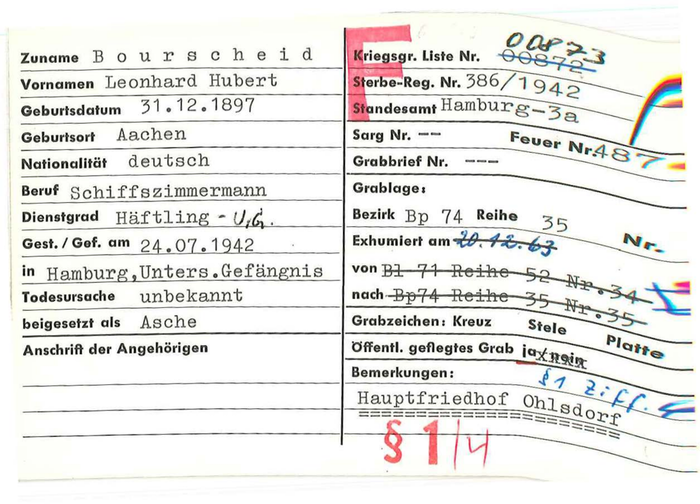 Zuname Bourscheid
Vornamen Leonhard Hubert
Geburtsdatum 31.12.1897
Geburtsort Aachen
Nationalität deutsch
Beruf Schiffszimmermann
Dienstgrad Häftling - U.G.
Gest. / Gef. am 24.07.1942
in Hamburg,Unters.Gefängnis
Todesursache unbekannt
beigesetzt als Asche
Anschrift der Angehörigen
F
Kriegsgr. Liste Nr. 00872 00873
Sterbe-Reg. Nr. 386/1942
Standesamt Hamburg-3a
Sarg Nr. -- Feuer Nr. 487
Grabbrief Nr. ---
Grablage:
Bezirk Bp 74 Reihe 35 Nr.
Exhumiert am 20.12.63
von Bl 71 Reihe 52 Nr.34
nach Bp74 Reihe 35 Nr.35
Grabzeichen: Kreuz Stele Platte
Öffentl. gepflegtes Grab ja/nein
Bemerkungen: §1 Ziff.
Hauptfriedhof Ohlsdorf
§ 1/4